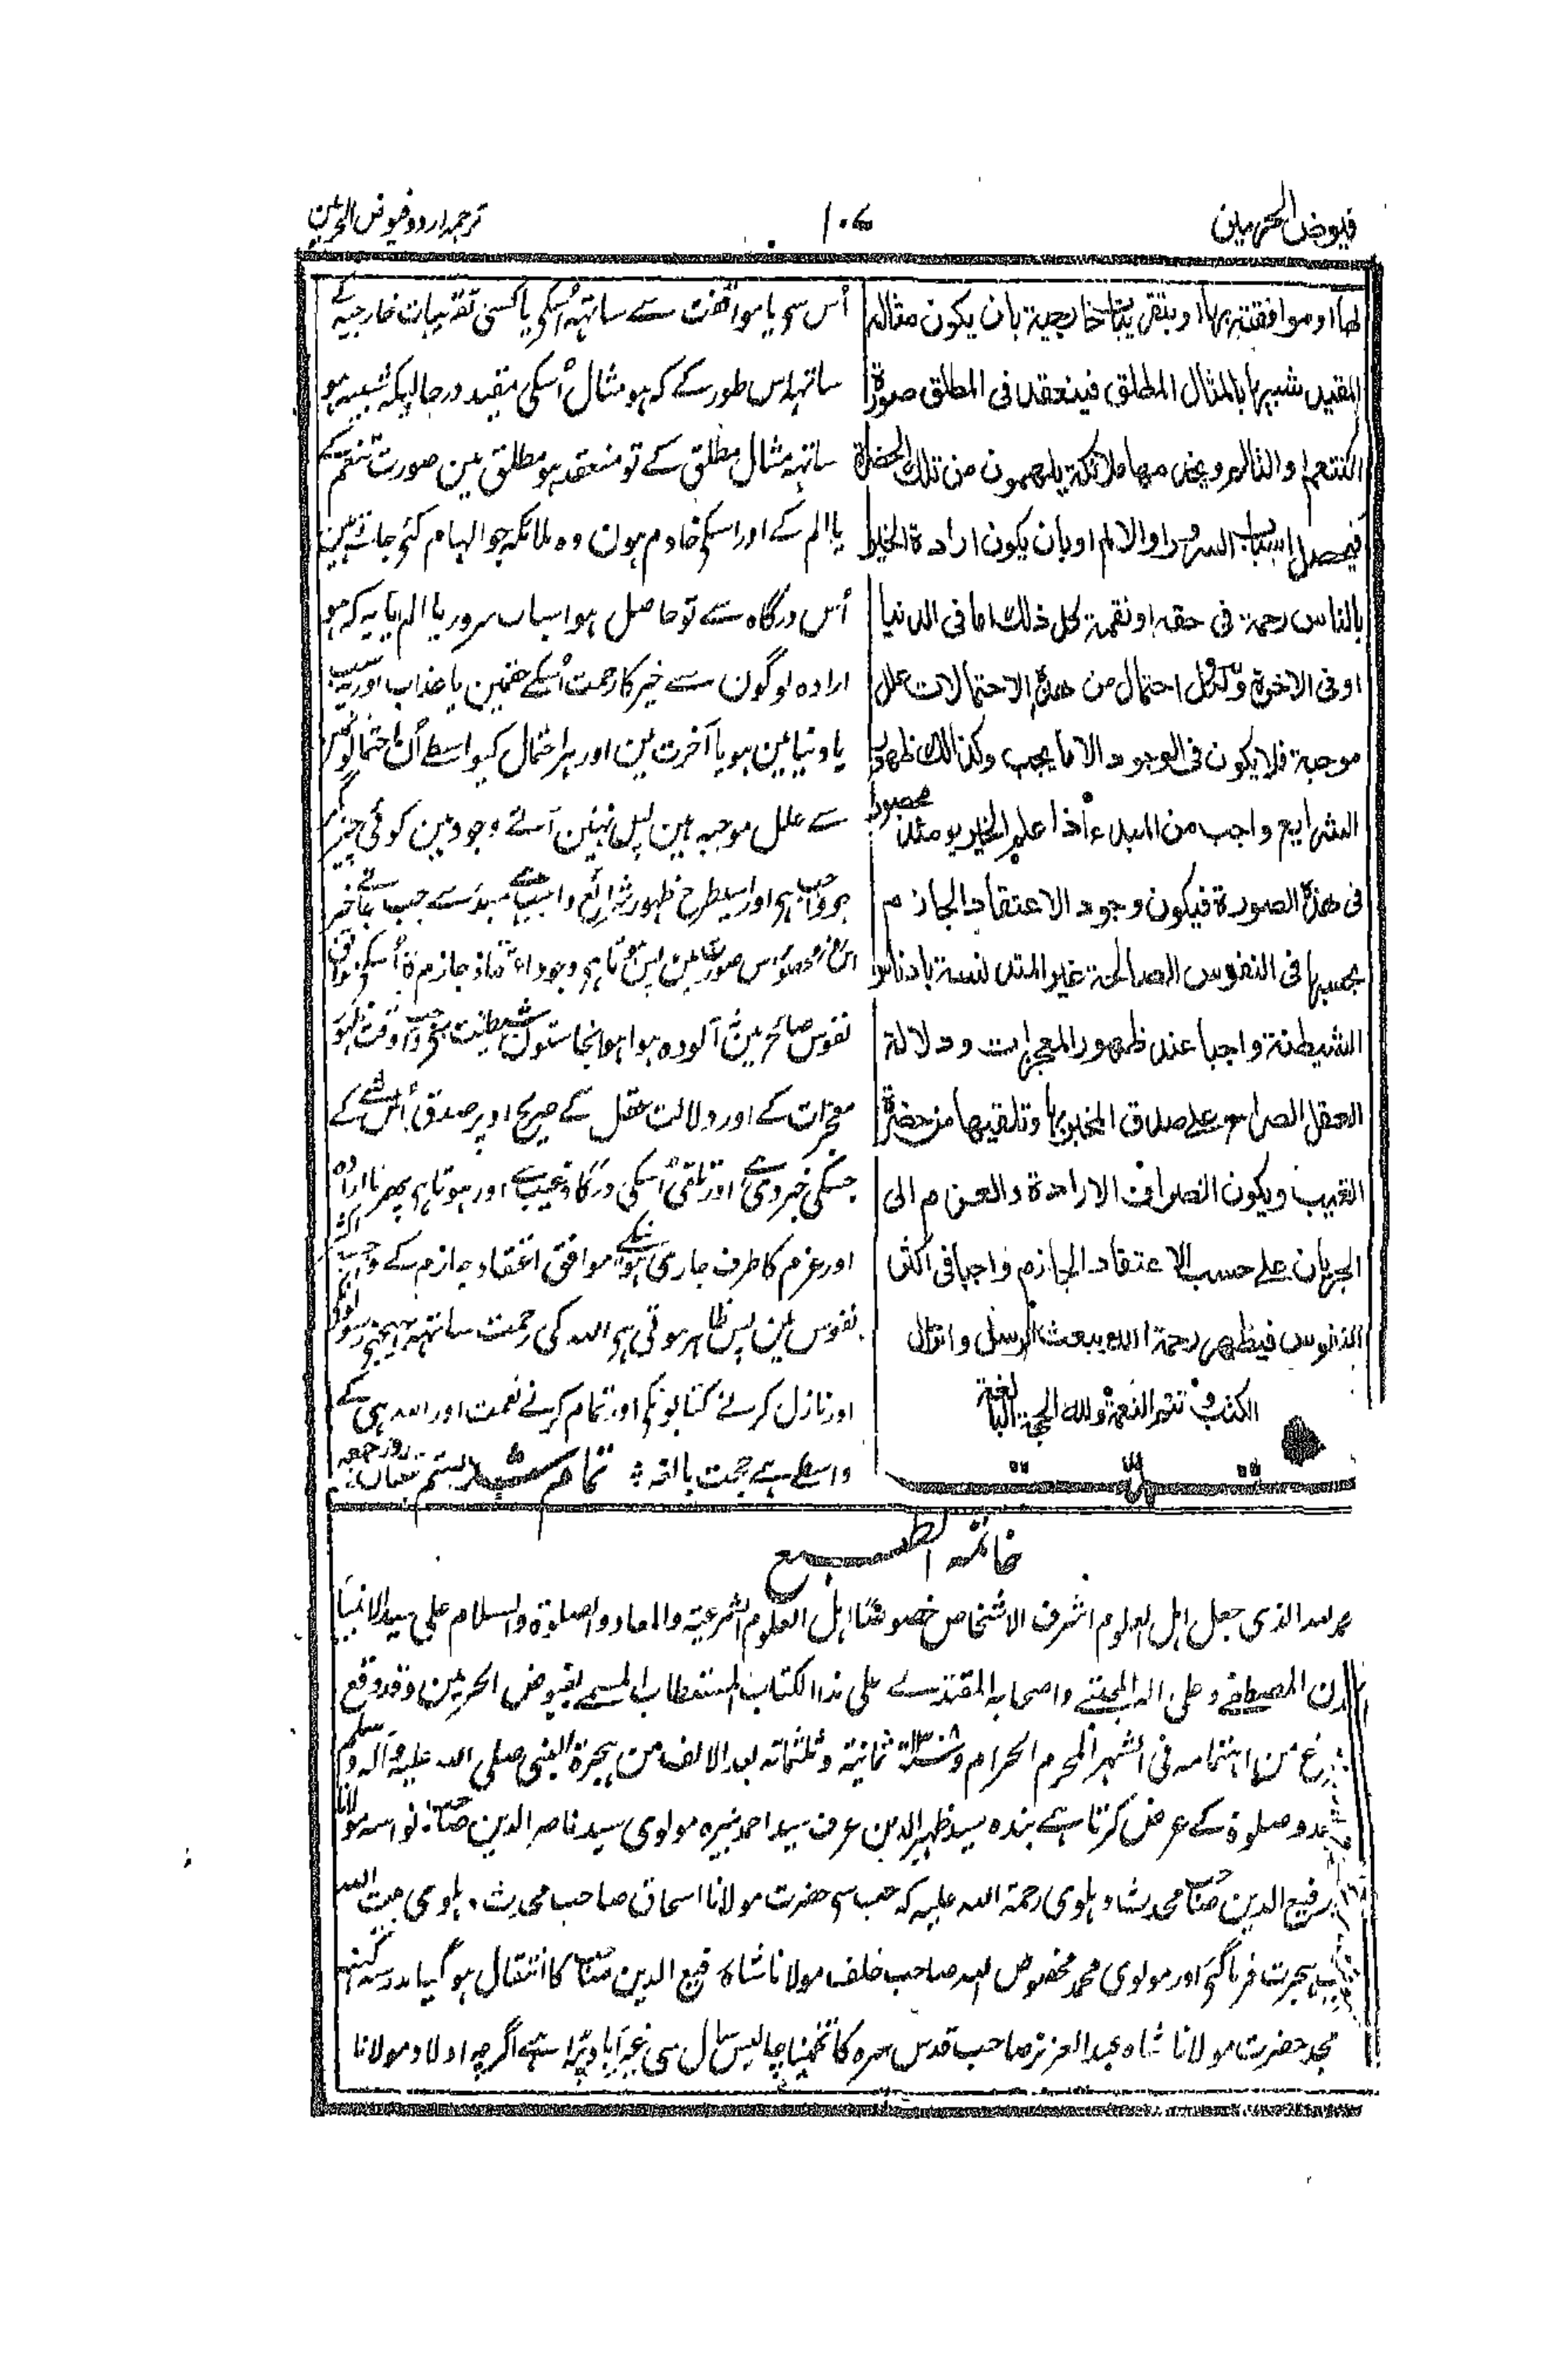 فیوض الحرمین
۱۰۷
ترجمہ اردو فیوض الحرمین
لها او موافقته بها او بتقریبات خارجیة بان یکون مثاله
المقید شبیها بالمثال المطلق فینعقد فی المطلق صورة
التنعم او التالم ویخدمها ملائکة یلهمون من تلک الحضرة
فیحصل اسباب السرور او الالم او بان یکون ارادة الخیر
بالناس رحمة فی حقه او نقمة لکل ذلک اما فی الدنیا
او فی الاخرة ولکل احتمال من هذه الاحتمالات علل
موجبة فلا یکون فی الوجود الا ما یجب وکذالک ظهور
الشرایع واجب من المبدء اذا علم الخیر یومئذ محصورا
فی هذه الصورة فیکون وجود الاعتقاد الجازم
بحسبها فی النفوس الصالحة غیر المتدنسة بادناس
الشیطنة واجبا عند ظهور المعجزات ودلالة
العقل الصراح علی صدق المخبر بها وتلقیها من حضرة
الغیب ویکون انصراف الارادة والعزم الی
الجریان علی حسب الاعتقاد الجازم واجبا فی اکثر
النفوس فیظهر رحمة الله ببعث الرسل وانزال
الکتب وتتم النعمة ولله الحجة البالغة
اُس سی یا موافقت سے ساتہہ اُسکی یا کسی تقریبات خارجیہ کے
ساتہہ اس طور کے کہ ہو مثال اُسکی مقید درحالیکہ شبیہ ہو
ساتہہ مثال مطلق کے تو منعقد ہو مطلق مین صورت تنعم کے
یا الم کے اور اسکی خادم ہون وہ ملائکہ جو الہام کئی جاتے ہین
اُس درگاہ سے تو حاصل ہو اسباب سرور یا الم یا یہ کہ ہو
ارادہ لوگون سے خیر کا رحمت اُسکے حقمین یا عذاب اور یہ سب
یا دنیا مین ہو یا آخرت مین اور ہر احتمال کیواسطے اُن احتمالونمین
سے علل موجبہ ہین پس نہین آتے وجود مین کوئی چیز مگر
جو واجب ہی اور اسیطرح ظہور شرائع واجب ہے مبدٔ سے جب
صورت مین پس ہوتا ہی وجود اعتقاد جازم کا اُسکے موافق
نفوس صالحہ مین نہ آلودہ ہوا ہو نجاستون شیطنت سے واجب وقت ظہور
معجزات کے اور دلالت عقل کے صریح اوپر صدق اُس شے کے
جسکی خبر دی ہے اور تلقی اُسکی درگاہ غیب سے اور ہوتا ہی پھرنا ارادہ
اور عزم کا طرف جاری ہونیکے موافق اعتقاد جازم کے واجب اکثر
نفوس مین پس ظاہر ہوتی ہی اللہ کی رحمت ساتہہ بہیجنے رسولونکے
اور نازل کرنے کتابونکی اور تمام کرنے نعمت اور اللہ ہی کے
واسطے ہے حجت بالغہ تمام شد بستم شعبان روز جمعہ
خاتمۃ الطبع
جعل اہل العلوم اشرف الاشخاص خصوصًا اہل العلوم الشرعیۃ والمعاد والصلوۃ والسلام علی سید الانبیا
المصطفے وعلی الہ المجتبے واصحابہ المقتدے علی ہذا الکتاب المستطاب المسمے بفیوض الحرمین وقد وقع
من اہتمامہ فی الشہر المحرم الحرام ۱۳۰۸ ثمانیۃ وثلثمائہ بعد الالف من ہجرۃ النبی صلی اللہ علیہ وآلہ وسلم
وصلوۃ کے عرض کرتا ہے بندہ سید ظہیر الدین عرف سید احمد نبیرہ مولوی سید ناصر الدین صاحب نواسہ مولانا
رفیع الدین صاحب محدث دہلوی رحمۃ اللہ علیہ کہ جب سی حضرت مولانا اسحاق صاحب محدث دہلوی رحمت اللہ
ہجرت فرما گئی اور مولوی محمد مخصوص اللہ صاحب خلف مولانا شاہ رفیع الدین صاحب کا انتقال ہو گیا مدرسہ کہنہ
جد حضرت مولانا شاہ عبد العزیز صاحب قدس سرہ کا تخمینا چالیس سال سی غیر آباد پڑا ہے اگرچہ اولاد مولانا